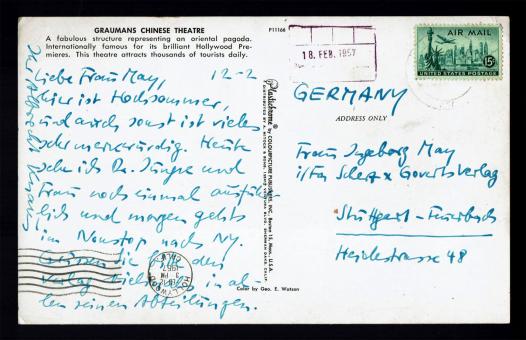 GRAUMANS CHINESE THEATRE
A fabulous structure representing an oriental pagoda.
Internationally famous for its brilliant Hollywood Pre-
mieres. This theatre attracts thousands of tourists daily.
P11166
18. FEB. 1957
AIR MAIL
15¢
UNITED STATES POSTAGE
12-2
Liebe Frau May,
hier ist Hochsommer,
und auch sonst ist vieles
sehr merkwürdig. Heute
sehe ich Dr. Jungre und
Frau noch einmal ausführ-
lich und morgen gehts
im Nonstop nach NY.
Grüssen Sie bitte den
Verlag vielmals in al-
len seinen Abteilungen.
Ihr Albrecht Knaus
Plastichrome by COLOURPICTURE PUBLISHERS, INC., Boston 15, Mass., U.S.A.
GERMANY
ADDRESS ONLY
Frau Ingeborg May
Scherz & Govertsverlag
Stuttgart-Feuerbach
Heidestrasse 48
HOLLYWOOD
CALIF.
FEB 12
3 PM
1957
Color by Geo. E. Watson